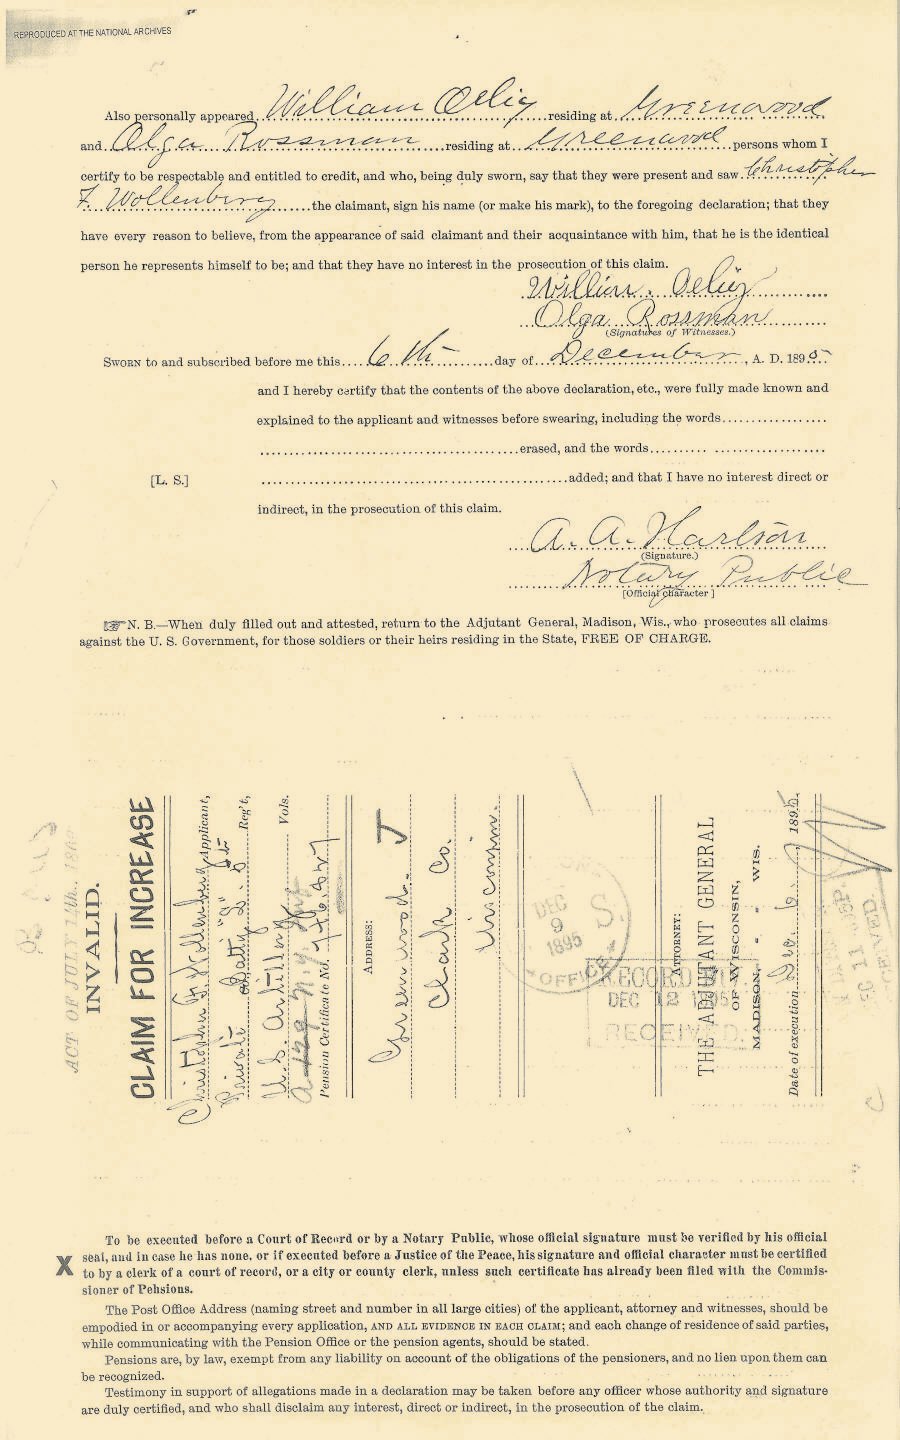 REPRODUCED AT THE NATIONAL ARCHIVES
Also personally appeared William Oelig residing at Greenwood
and Olga Rossman residing at Greenwood persons whom I
certify to be respectable and entitled to credit, and who, being duly sworn, say that they were present and saw Christopher
F. Wollenberg the claimant, sign his name (or make his mark), to the foregoing declaration; that they
have every reason to believe, from the appearance of said claimant and their acquaintance with him, that he is the identical
person he represents himself to be; and that they have no interest in the prosecution of this claim.
William Oelig
Olga Rossman
(Signatures of Witnesses.)
SWORN to and subscribed before me this 6th day of December, A. D. 1895
and I hereby certify that the contents of the above declaration, etc., were fully made known and
explained to the applicant and witnesses before swearing, including the words
erased, and the words
[L. S.] added; and that I have no interest direct or
indirect, in the prosecution of this claim.
A. A. Hartson
(Signature.)
Notary Public
[Official character]
N. B.—When duly filled out and attested, return to the Adjutant General, Madison, Wis., who prosecutes all claims
against the U. S. Government, for those soldiers or their heirs residing in the State, FREE OF CHARGE.
ACT OF JULY 14th.,
INVALID.
CLAIM FOR INCREASE
Christopher F Wollenberg Applicant,
Private Batty "L" 5 Reg't,
U.S. Artillery Vols.
Pension Certificate No.
ADDRESS:
Greenwood.
Clark Co.
Wisconsin.
DEC
9
1895
OFFICE
RECORD DIV.
DEC 12 1895
RECEIVED.
ATTORNEY:
THE ADJUTANT GENERAL
OF WISCONSIN,
MADISON, - - WIS.
Date of execution Dec 6, 1895.
X To be executed before a Court of Record or by a Notary Public, whose official signature must be verified by his official
seal, and in case he has none, or if executed before a Justice of the Peace, his signature and official character must be certified
to by a clerk of a court of record, or a city or county clerk, unless such certificate has already been filed with the Commis-
sioner of Pensions.
The Post Office Address (naming street and number in all large cities) of the applicant, attorney and witnesses, should be
empodied in or accompanying every application, AND ALL EVIDENCE IN EACH CLAIM; and each change of residence of said parties,
while communicating with the Pension Office or the pension agents, should be stated.
Pensions are, by law, exempt from any liability on account of the obligations of the pensioners, and no lien upon them can
be recognized.
Testimony in support of allegations made in a declaration may be taken before any officer whose authority and signature
are duly certified, and who shall disclaim any interest, direct or indirect, in the prosecution of the claim.